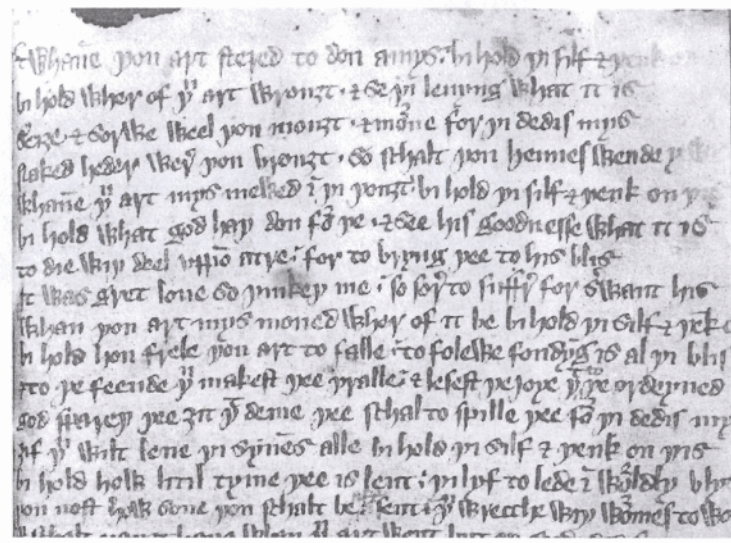 whane þou art stered to don amys: bi hold þi silf & þenk
bi hold wher of þu art wrouȝt · & se þi leuing what it is
& sorwe weel þou mouȝt · & for þi dedis mys
naked heder wer þou brouȝt · so schalt þou hennes wende
whane þu art mys meued ī þi þouȝt: bi hold þi silf & þenk on
bi hold what god haþ don for þe · & see his goodnesse what it is
to die wiþ deel vppō a tre: for to bryng þee to his blis
it was gret loue so þinkeþ me: so sore to suffre for seruant his
whan þou art mys moued wher of it be bi hold þi silf &
bi hold hou frele þou art to falle: to folewe fondyng is al þi blis
to þe feende þu makest þee þralle: & lesest þe ioye þt ordeyned
god spareþ þee ȝit þt deme þee schal to spille þee for þi dedis
ȝif þu wilt leue þi synnes alle bi hold þi silf & þenk on þis
bi hold how litil tyme þee is lent: þi lyf to lede ī worldly
þou nost how sone þou schalt be sent: þu wrecche wiþ to